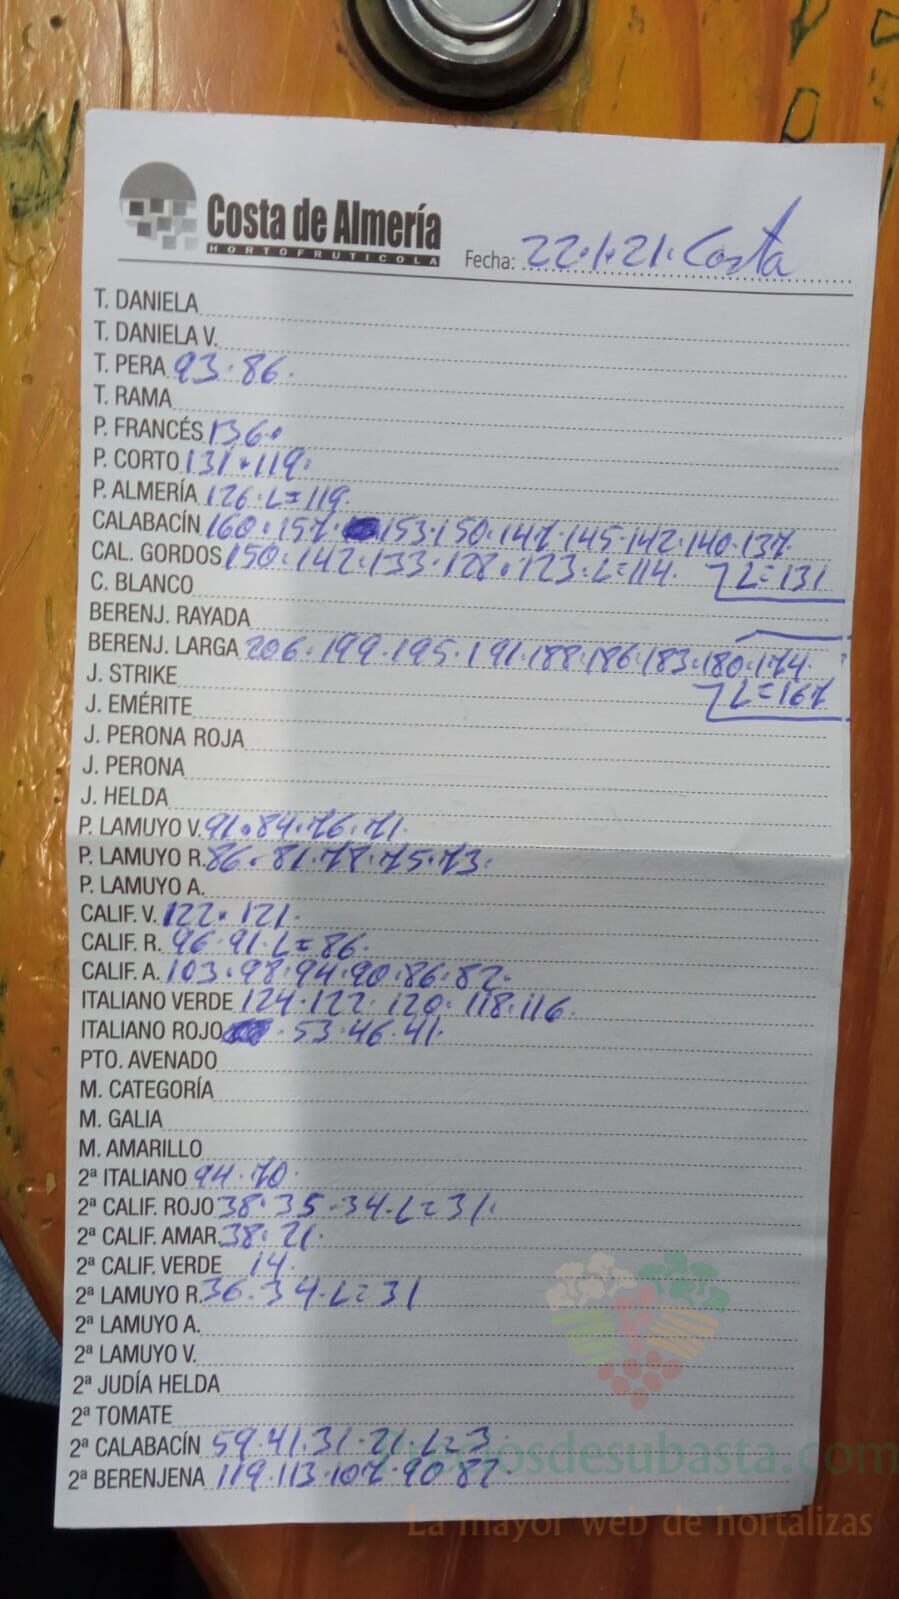 Costa de Almería
HORTOFRUTICOLA
Fecha: 22·1·21· Costa
T. DANIELA
T. DANIELA V.
T. PERA 93·86·
T. RAMA
P. FRANCÉS 136·
P. CORTO 131·119·
P. ALMERÍA 126·L=119·
CALABACÍN 160·157·153·150·147·145·142·140·137·
CAL. GORDOS 150·142·133·128·123·L=114· L=131
C. BLANCO
BERENJ. RAYADA
BERENJ. LARGA 206·199·195·191·188·186·183·180·174·
J. STRIKE L=167
J. EMÉRITE
J. PERONA ROJA
J. PERONA
J. HELDA
P. LAMUYO V. 91·84·76·71·
P. LAMUYO R. 86·81·78·75·73·
P. LAMUYO A.
CALIF. V. 122·121·
CALIF. R. 96·91·L=86·
CALIF. A. 103·98·94·90·86·82·
ITALIANO VERDE 124·122·120·118·116·
ITALIANO ROJO ·53·46·41·
PTO. AVENADO
M. CATEGORÍA
M. GALIA
M. AMARILLO
2ª ITALIANO 94·70·
2ª CALIF. ROJO 38·35·34·L=31·
2ª CALIF. AMAR. 38·21·
2ª CALIF. VERDE 14·
2ª LAMUYO R. 36·34·L=31
2ª LAMUYO A.
2ª LAMUYO V.
2ª JUDÍA HELDA
2ª TOMATE
2ª CALABACÍN 59·41·31·21·L=3·
2ª BERENJENA 119·113·107·90·82·
Preciosdesubasta.com
La mayor web de hortalizas